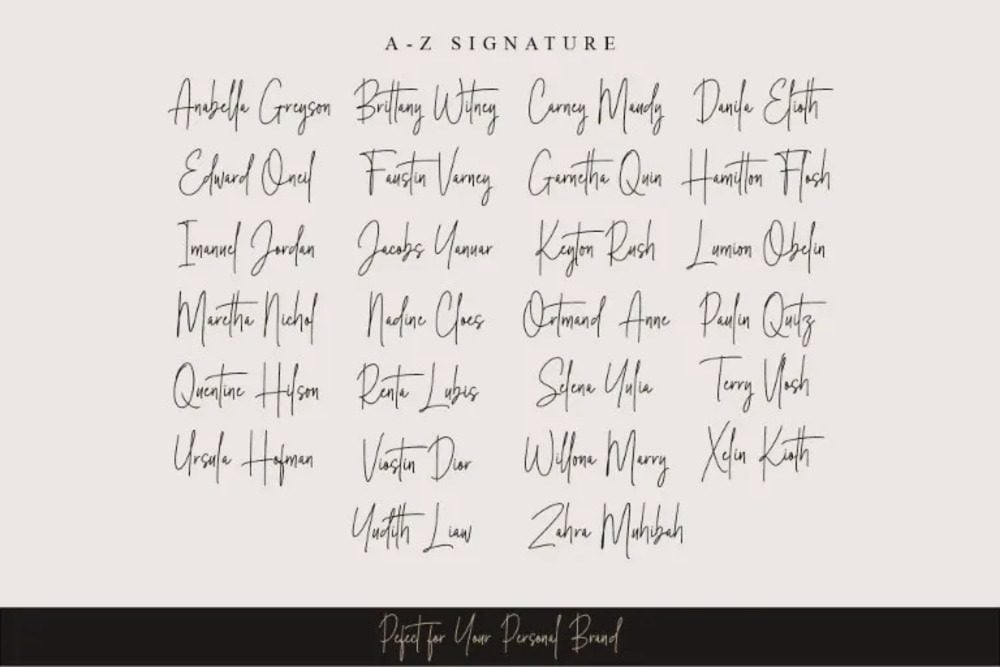 A-Z SIGNATURE
Anabella Greyson Brittany Witney Carney Maudy Danila Elioth
Edward Oneil Faustin Varney Garnetha Quin Hamilton Flosh
Imanuel Jordan Jacobs Yanuar Keyton Rush Lumion Obelin
Maretha Nichol Nadine Cloes Ortmand Anne Paulin Quitz
Quentine Hilson Renta Lubis Selena Yulia Terry Vlosh
Ursula Hofman Viostin Dior Willona Marry Xelin Kioth
Yudith Liaw Zahra Muhibah
Pefect for Your Personal Brand